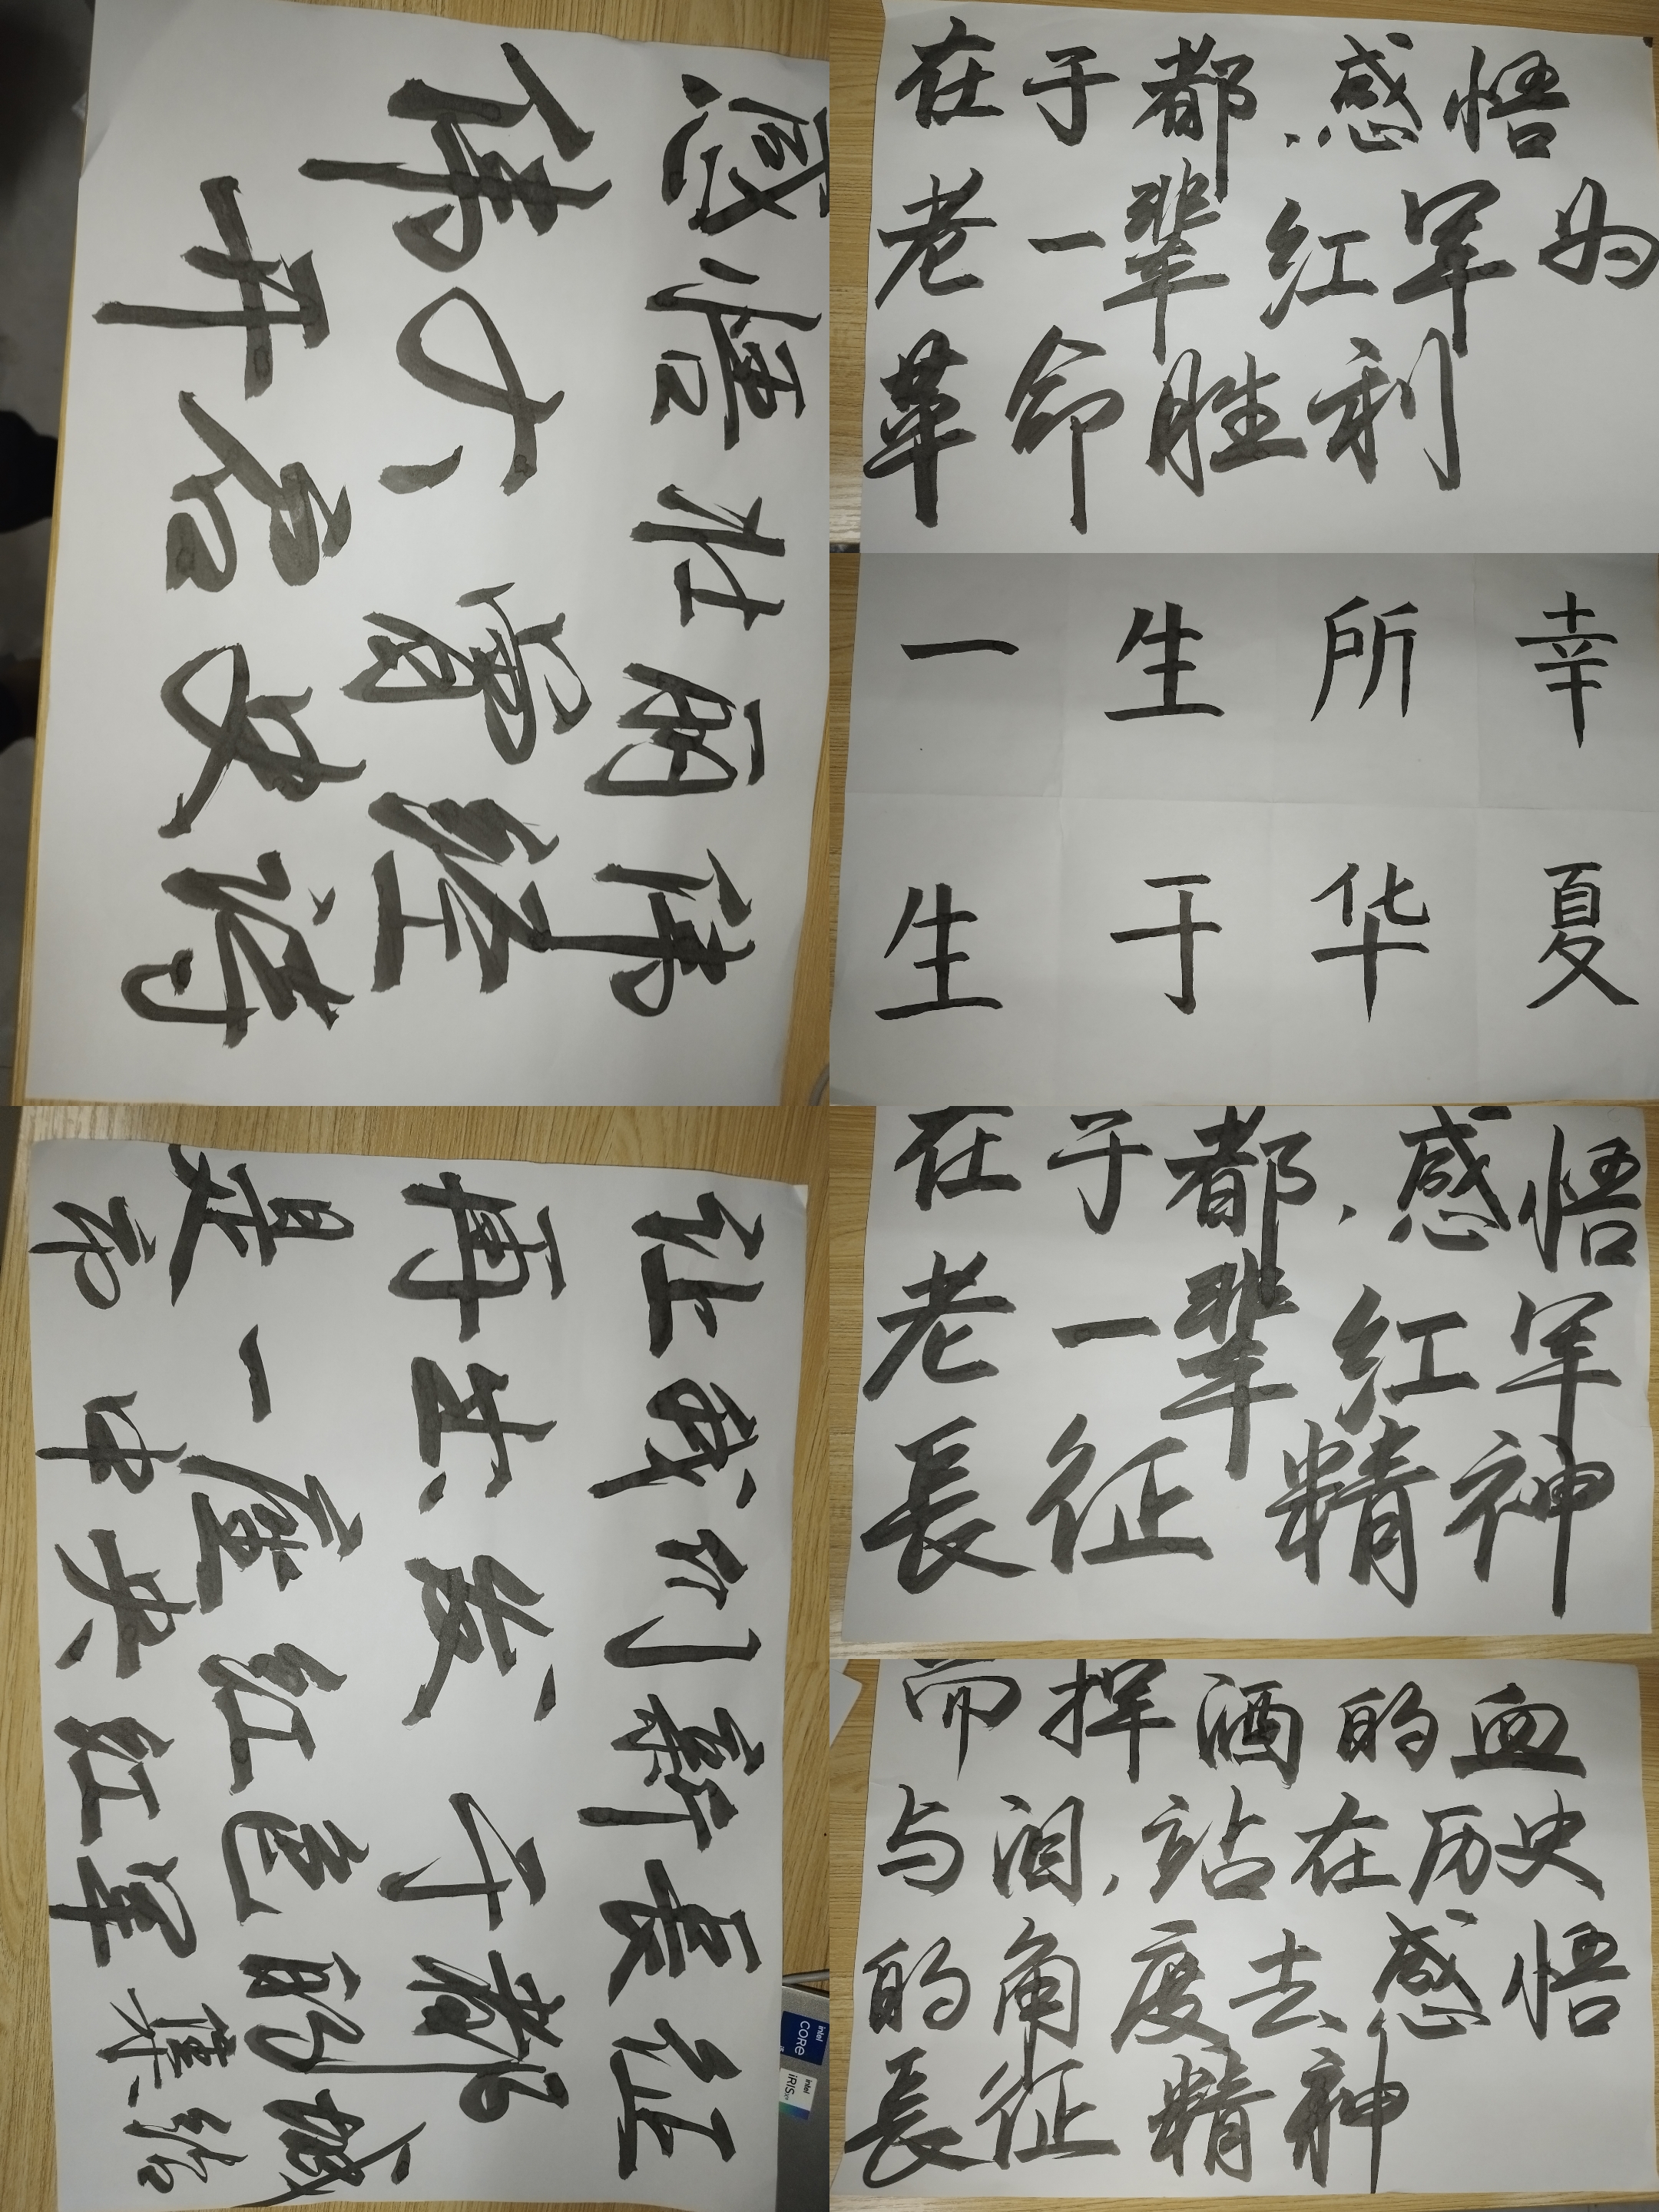 感悟壮丽伟
伟大 经
开启史诗
在于都,感悟
老一辈红军为
革命胜利
一生所幸
生于华夏
让我们新長征
再出发,于都
是一座红色的城
市中央红军集结
在于都,感悟
老一辈红军
長征精神
而挥洒的血
与泪,站在历史
的角度去感悟
長征精神
intel CORe
intel iRISxe